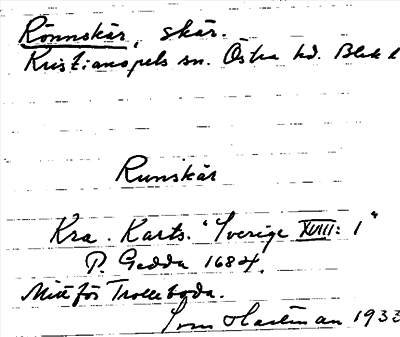 Rönnskär, skär.
Kristianopels sn. Östra hd. Blek l
Runskär
Kra. Karts. "Sverige XVIII: 1"
P. Gedda 1684.
Mitt för Trolleboda.
Hartman 1933